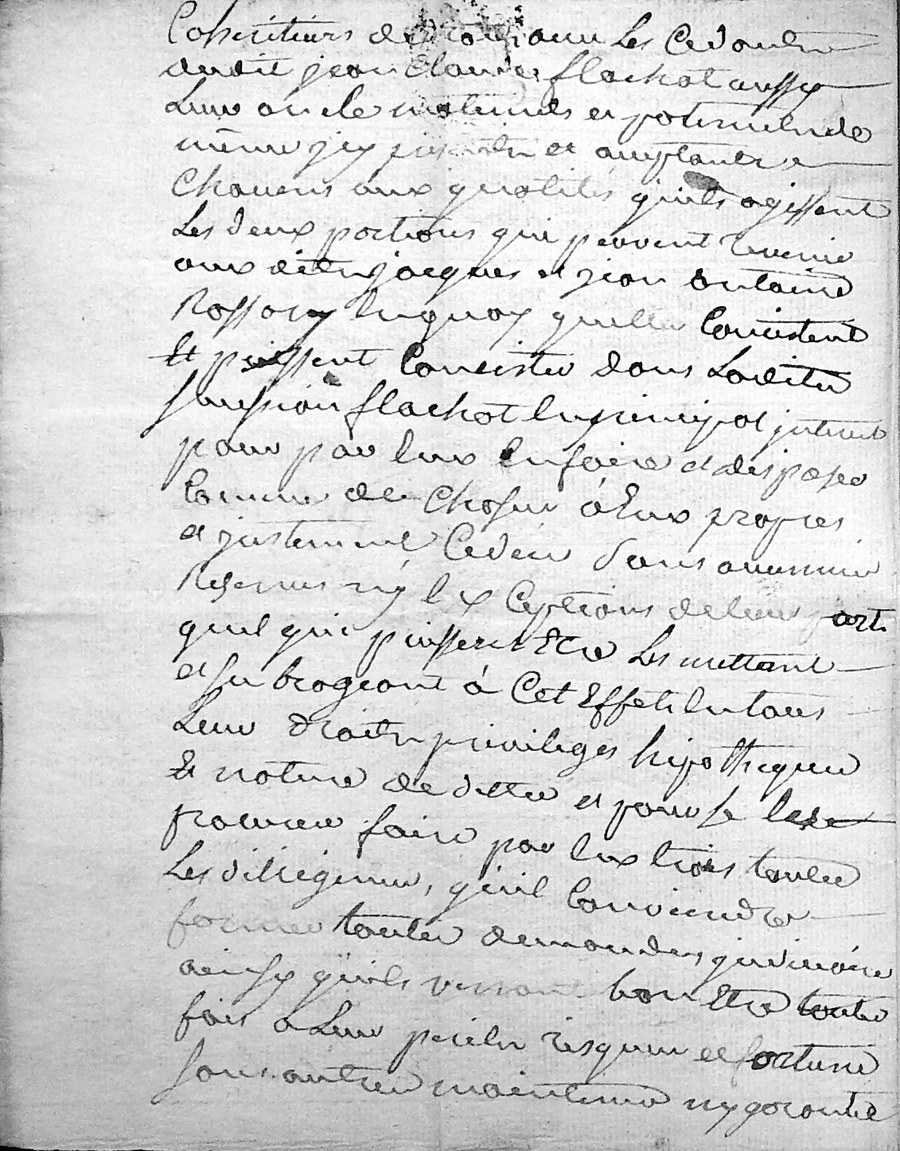 Coheritiers de Les Cedants
dudit jean Claude flachot aussy
Leur oncle maternels et paternel de
même jcy et acceptants
Chacuns aux qualités qu'ils agissent
Les deux portions qui peuvent revenir
aux dites jacques et jean antoine
Rossary en quoy qu'elles Concistent
Et puissent Concister dans Laditte
succession flachot en principal jnterest
pour par eux en faire et disposer
Comme de Choses à Eux propres
et justement Cedées sans aucunne
Reserves n'y Exceptions de leur part
quel qui puissent Etre Les mettant
et subrogeant à Cet Effet En tous
Leur droits privileges hipotheques
Et nature de dette et pour se Les
procurer faire par Eux trois toutes
Les diligences, qu'il Conviendra
former toutes demandes judiciaire
ainsy qu'ils verront bon Etre toutes
fois a Leur perils risques et fortune
sans autres maintenue ny garantie